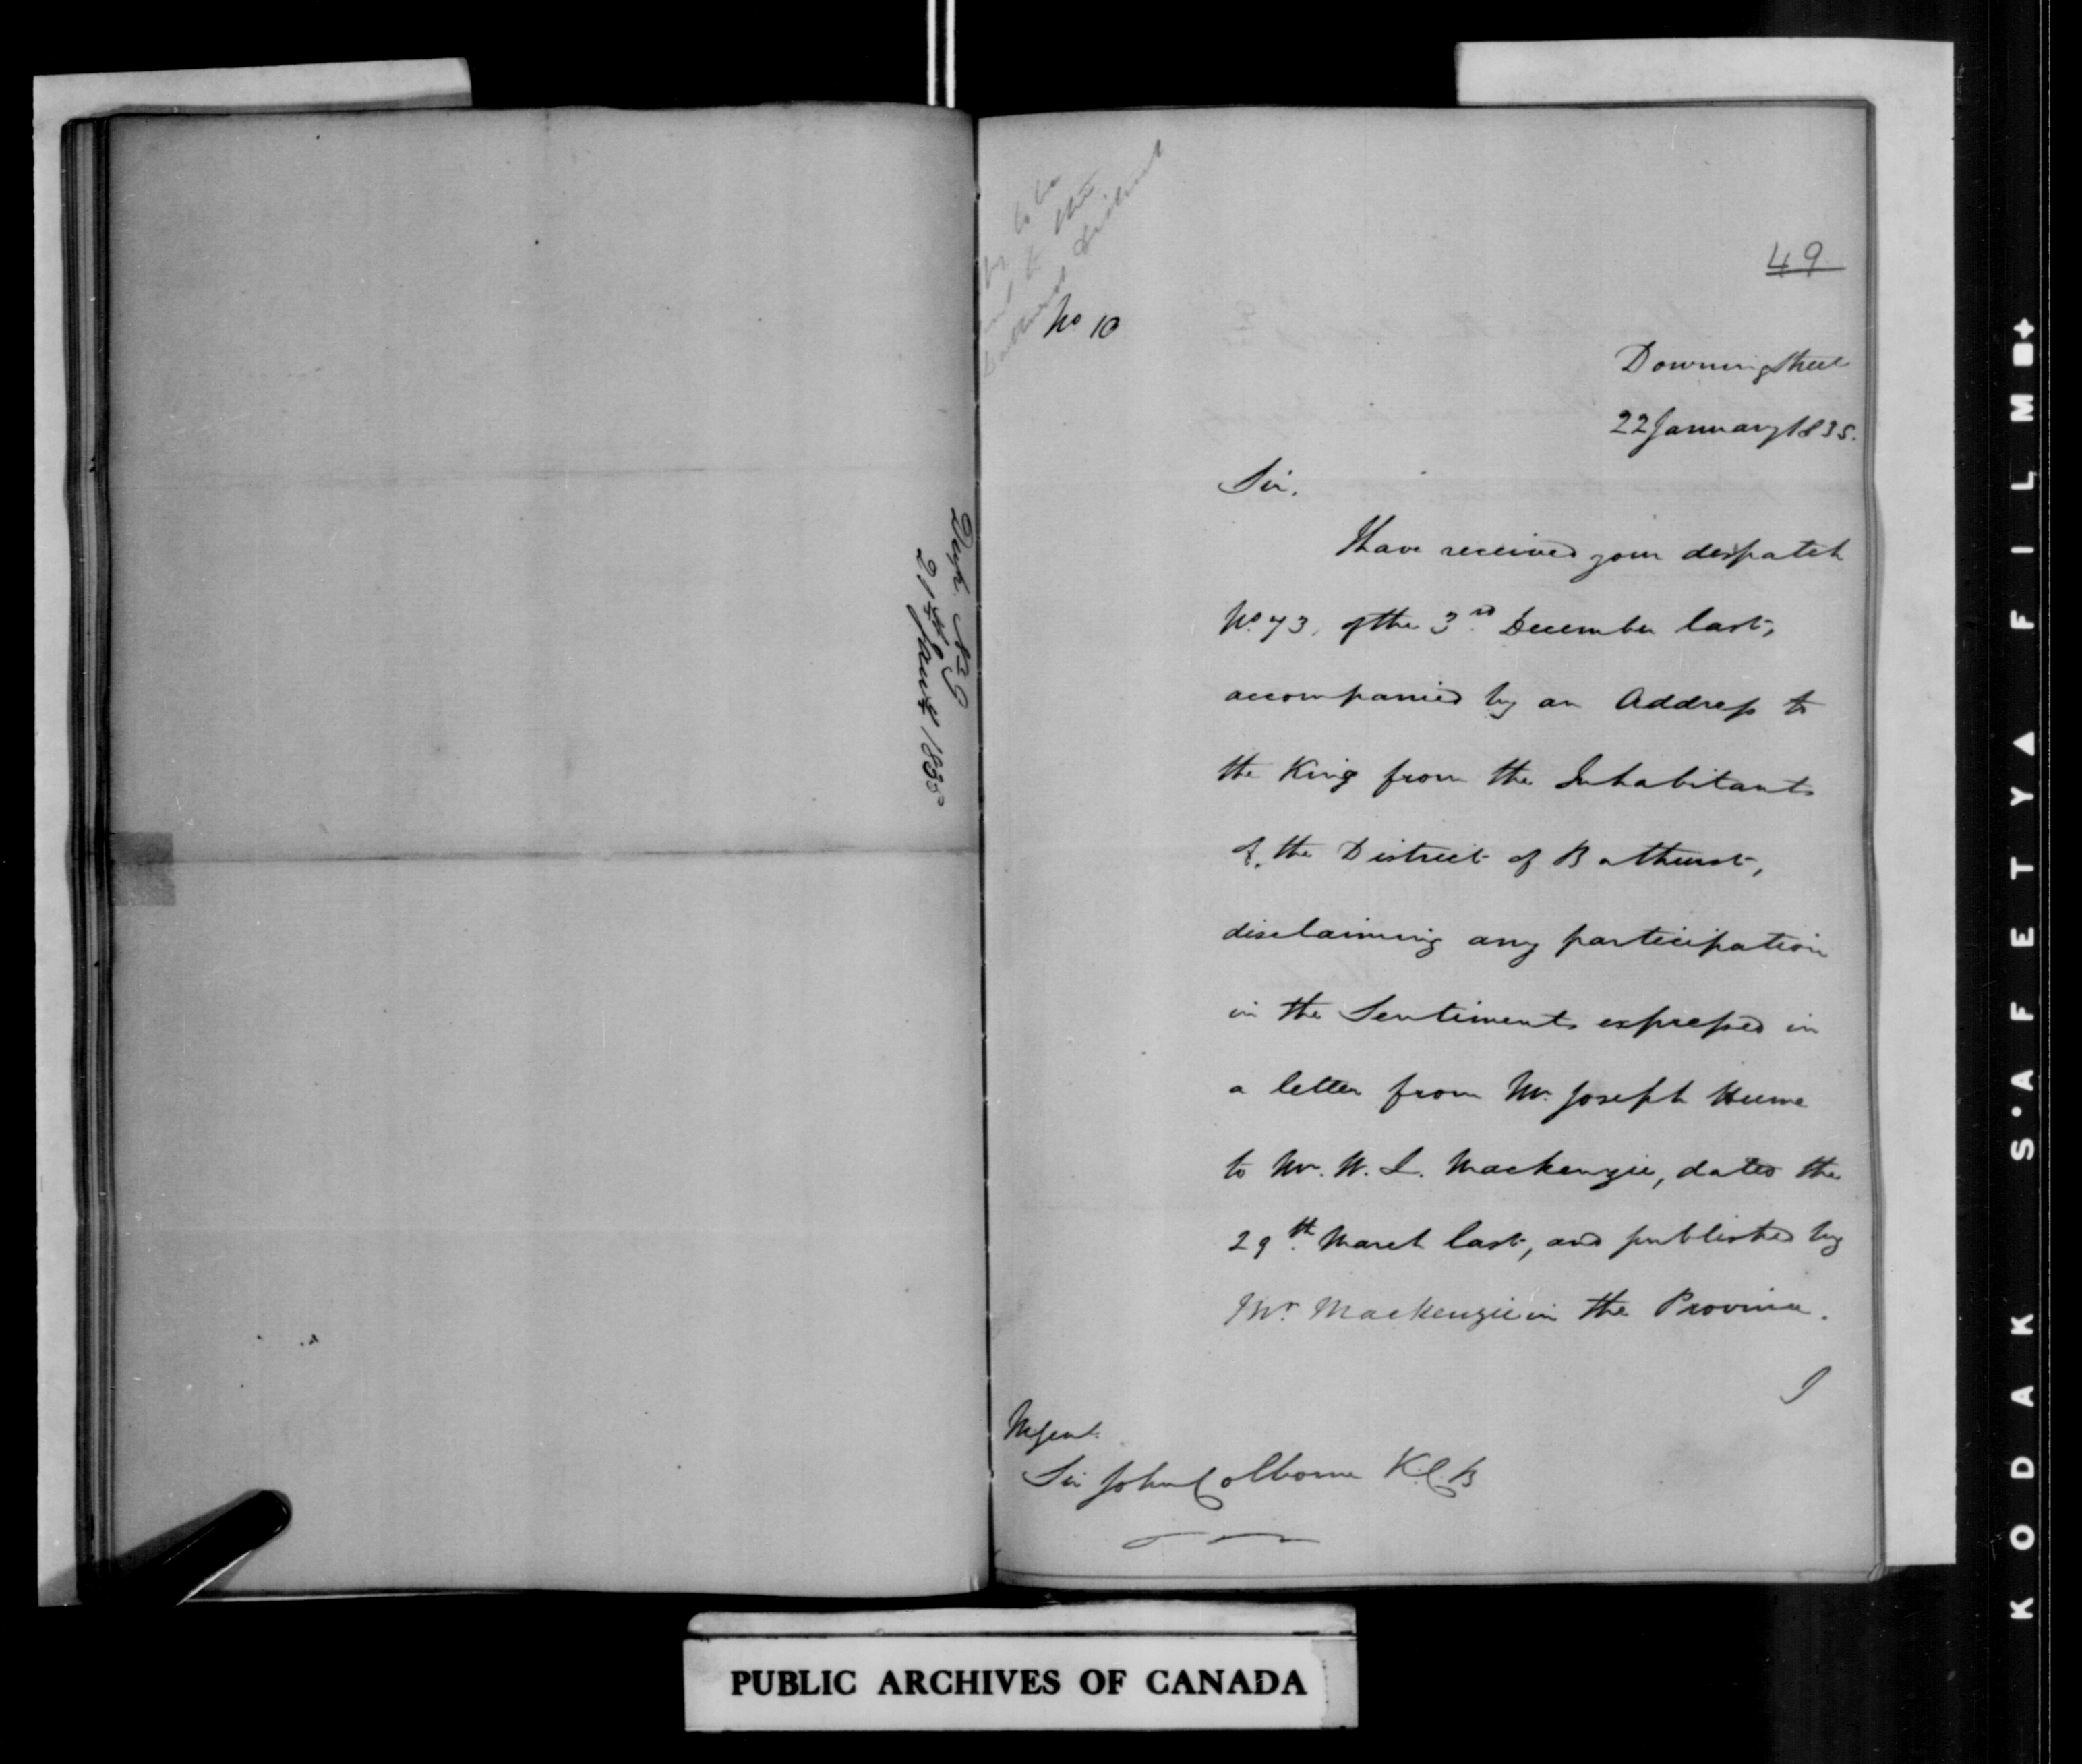 Desp. No 9
21st Jany 1835
to be
to the
District
No 10
49
Downing Street
22 January 1835.
Sir,
I have received your despatch
No. 73, of the 3rd December last,
accompanied by an Address to
the King from the Inhabitants
of the District of Bathurst,
disclaiming any participation
in the Sentiments expressed in
a letter from Mr. Joseph Hume
to Mr. W. L. Mackenzie, dated the
29th March last, and published by
Mr. Mackenzie in the Province.
I
M Genl.
Sir John Colborne K.C.B
PUBLIC ARCHIVES OF CANADA
KODAK S•AFETY▲FILM